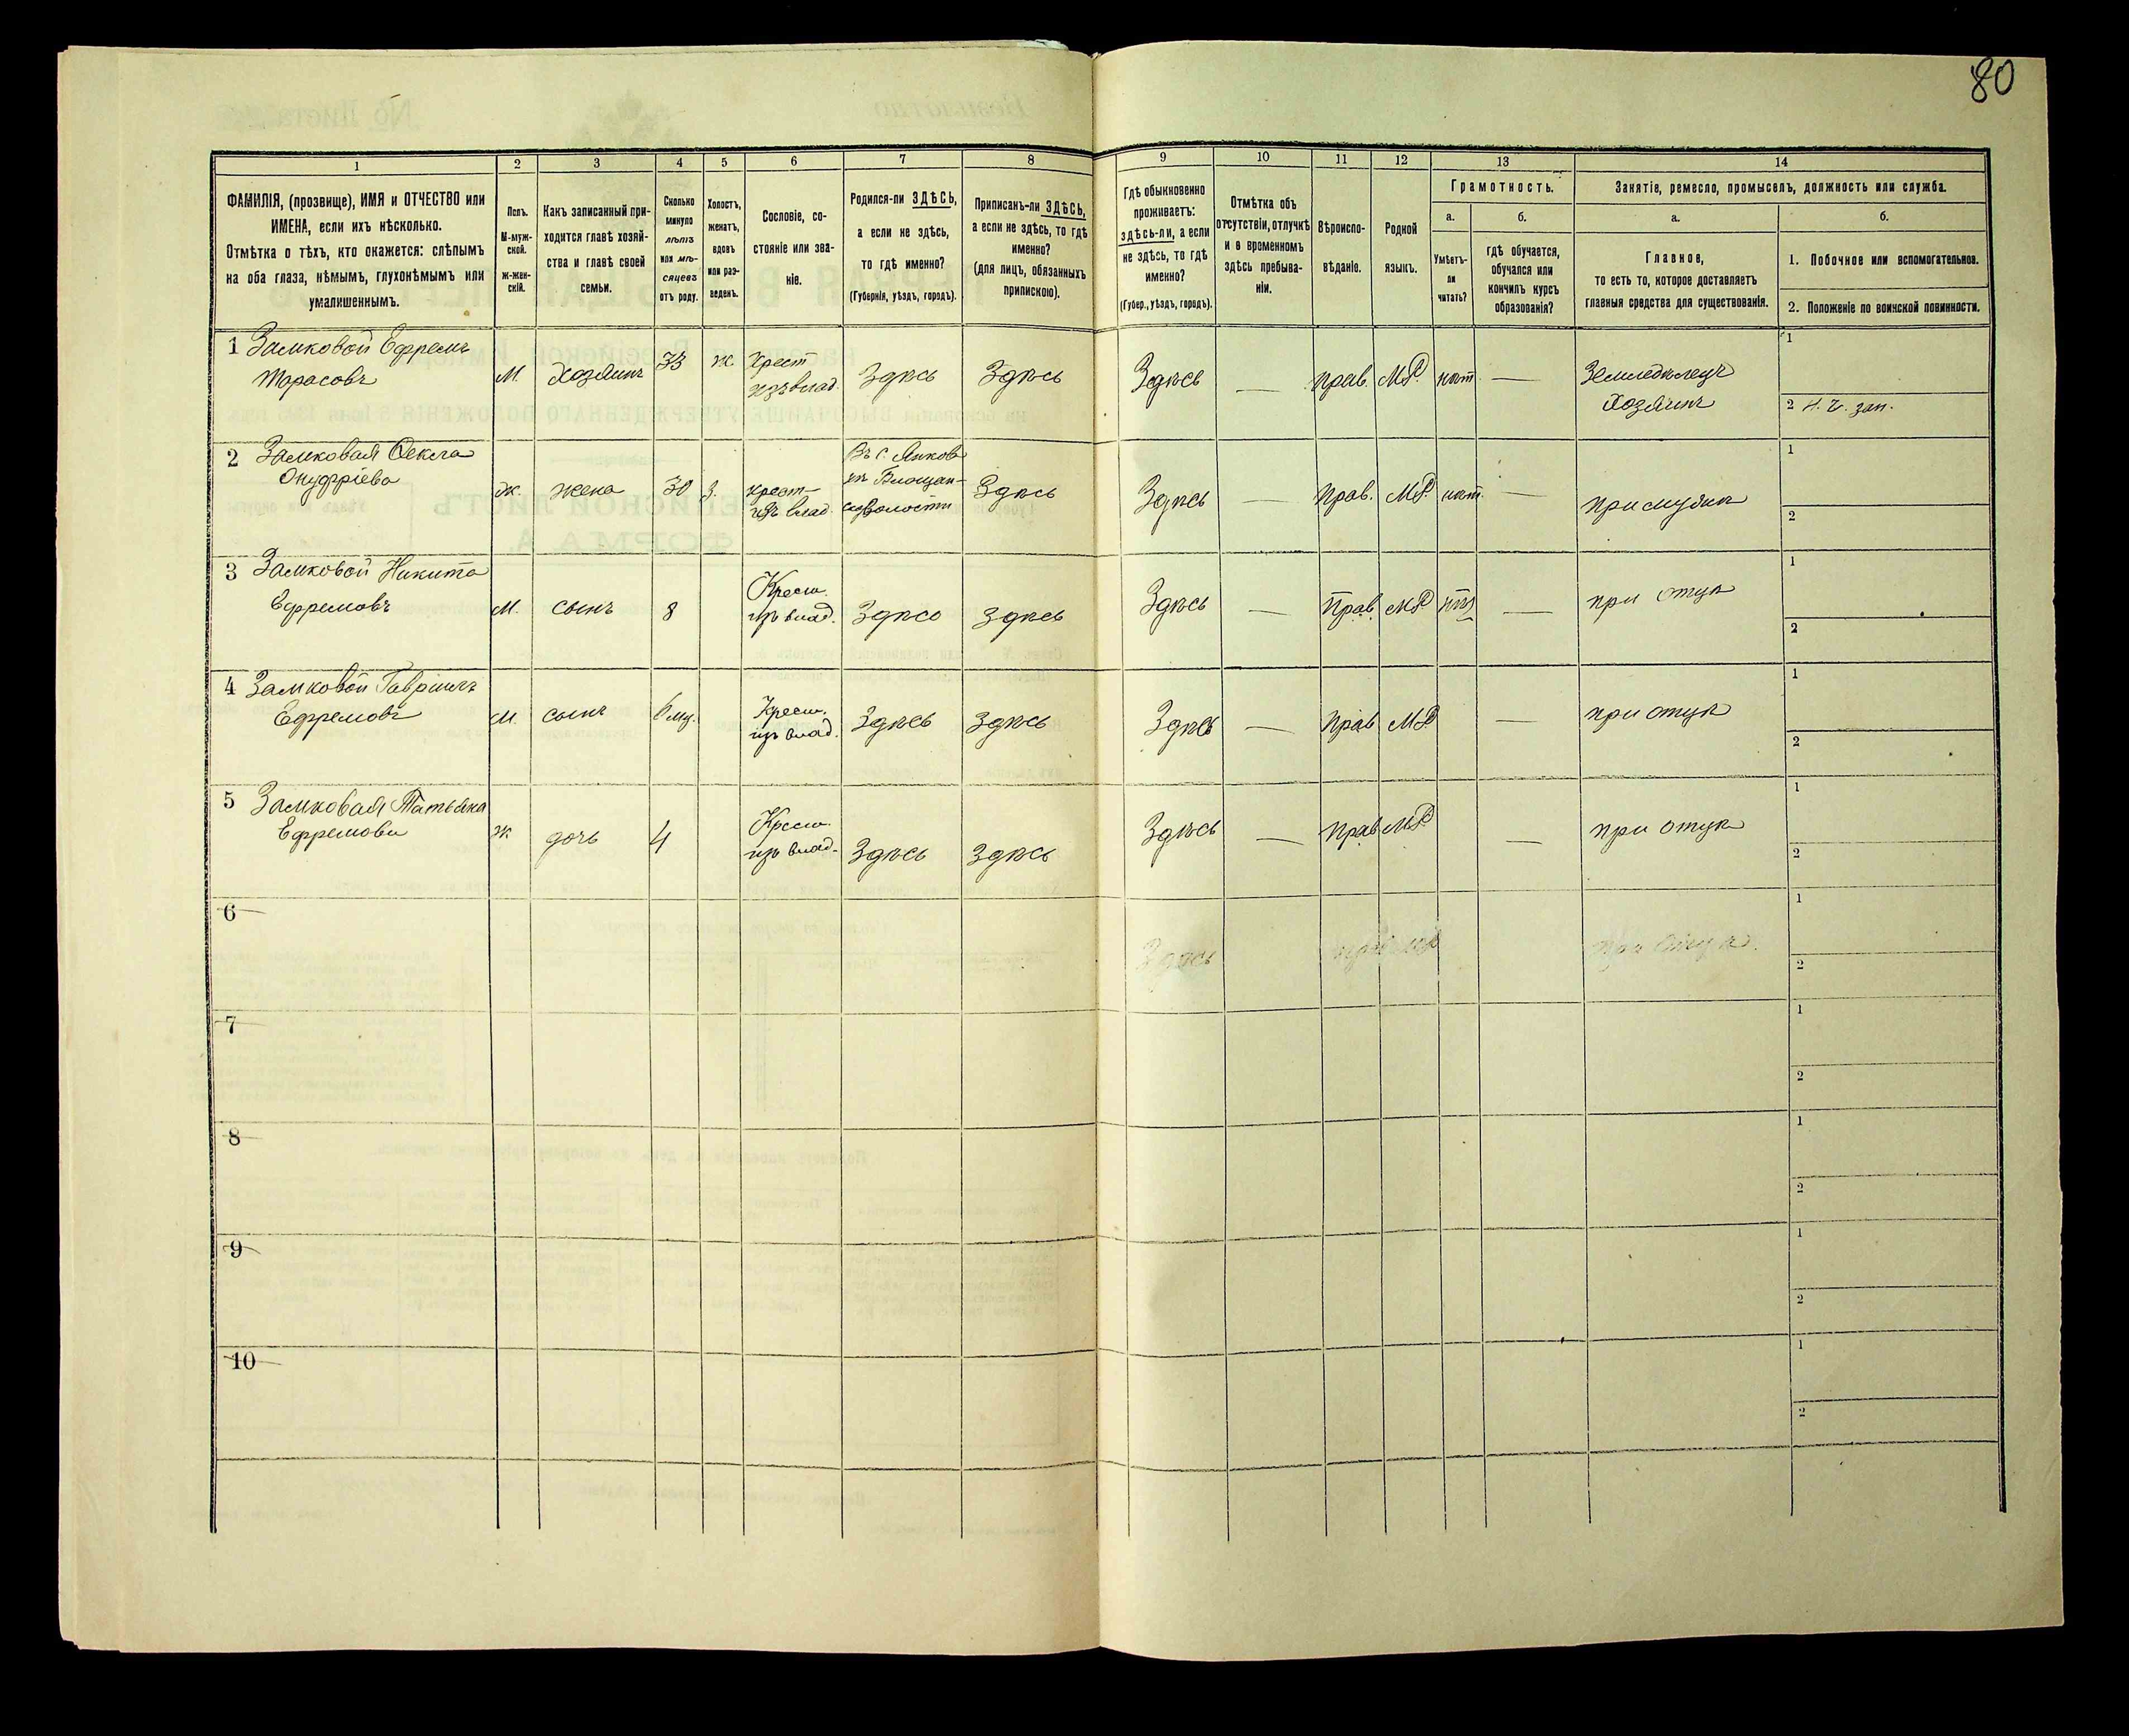 80
1 2 3 4 5 6 7 8 9 10 11 12 13 14
ФАМИЛІЯ, (прозвище), ИМЯ и ОТЧЕСТВО или
ИМЕНА, если ихъ нѣсколько.
Отмѣтка о тѣхъ, кто окажется: слѣпымъ
на оба глаза, нѣмымъ, глухонѣмымъ или
умалишеннымъ.
Полъ.
М-муж-
ской.
ж-жен-
скій.
Какъ записанный при-
ходится главѣ хозяй-
ства и главѣ своей
семьи.
Сколько
минуло
лѣтъ
или мѣ-
сяцевъ
отъ роду.
Холостъ,
женатъ,
вдовъ
или раз-
веденъ.
Сословіе, со-
стояніе или зва-
ніе.
Родился-ли ЗДѢСЬ,
а если не здѣсь,
то гдѣ именно?
(Губернія, уѣздъ, городъ).
Приписанъ-ли ЗДѢСЬ,
а если не здѣсь, то гдѣ
именно?
(для лицъ, обязанныхъ
припискою).
Гдѣ обыкновенно
проживаетъ:
здѣсь-ли, а если
не здѣсь, то гдѣ
именно?
(Губер., уѣздъ, городъ).
Отмѣтка объ
отсутствіи, отлучкѣ
и о временномъ
здѣсь пребыва-
ніи.
Вѣроиспо-
вѣданіе.
Родной
языкъ.
Грамотность.
а.
Умѣетъ-
ли
читать?
б.
гдѣ обучается,
обучался или
кончилъ курсъ
образованія?
Занятіе, ремесло, промыселъ, должность или служба.
а.
Главное,
то есть то, которое доставляетъ
главныя средства для существованія.
б.
1. Побочное или вспомогательное.
2. Положеніе по воинской повинности.
1 Замковой Ефремъ
Тарасовъ
М. Хозяинъ 33 ж Крест
изъ влад. Здѣсь Здѣсь Здѣсь — прав. МР. нѣт — Земледѣлецъ
Хозяинъ
1
2 Н. Ч. зап.
2 Замковая Фекла
Онуфріева
ж. жена 30 З. крест
изъ влад. Здѣсь Здѣсь — Прав. МР нѣт. — при мужѣ
1
2
3 Замковой Никита
Ефремовъ
М. сынъ 8 Крест.
изъ влад. Здѣсь Здѣсь Здѣсь — Прав МР — при отцѣ
1
2
4 Замковой Гавріилъ
Ефремовъ
М. сынъ Крест.
изъ влад. Здѣсь Здѣсь Здѣсь — Прав МР — при отцѣ
1
2
5 Замковая Татьяна
Ефремова
ж дочь 4 Крест.
изъ влад. Здѣсь Здѣсь Здѣсь — Прав МР — при отцѣ
1
2
6 Здѣсь прав МР при отцѣ.
1
2
7
1
2
8
1
2
9
1
2
10
1
2